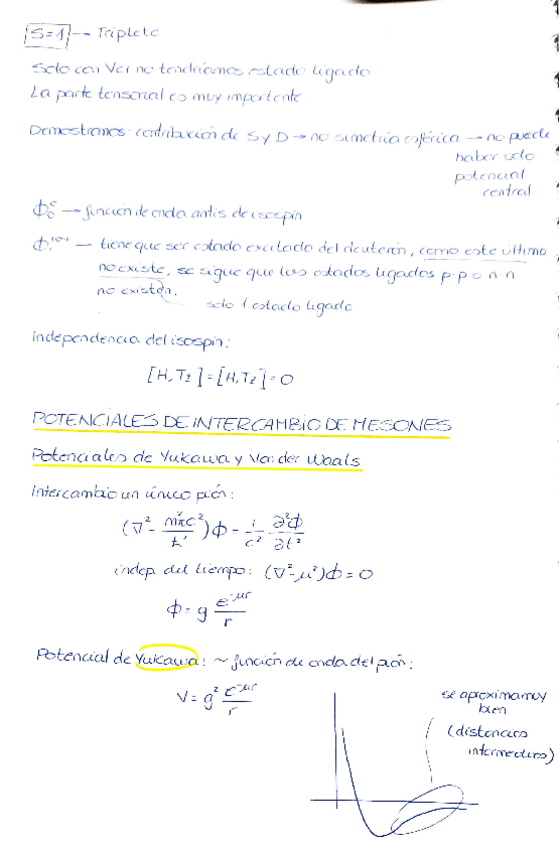 S=1 → Triplete
Solo con Vc no tendríamos estado ligado
La parte tensorial es muy importante
Demostramos: contribución de S y D → no simetría esférica → no puede
haber solo
potencial
central
→ función de onda antis de isospín
→ tiene que ser estado excitado del deuterón, como este último
no existe, se sigue que los estados ligados p-p o n-n
no existen.
solo 1 estado ligado
independencia del isospín:
POTENCIALES DE INTERCAMBIO DE MESONES
Potenciales de Yukawa y Van der Waals
Intercambio un único pión:
indep. del tiempo: (∇²-μ²)Φ = 0
Φ = g e^{-μr}/r
Potencial de Yukawa: ~ función de onda del pión:
V = g² e^{-μr}/r
se aproxima muy
bien
(distancias
intermedias)